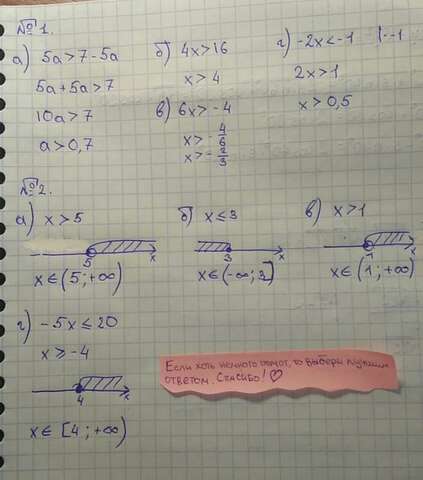 №1.
а) 5a>7-5a
5a+5a>7
10a>7
a>0,7
б) 4x>16
x>4
в) 6x>-4
x>-4/6
x>-2/3
г) -2x<-1 |·-1
2x>1
x>0,5
№2.
а) x>5
5 x
x∈(5;+∞)
б) x≤3
3 x
x∈(-∞;3]
в) x>1
1 x
x∈(1;+∞)
г) -5x≤20
x≥-4
4 x
x∈[4;+∞)
Если хоть немного помог, то выбери лучшим
ответом. Спасибо! ♡